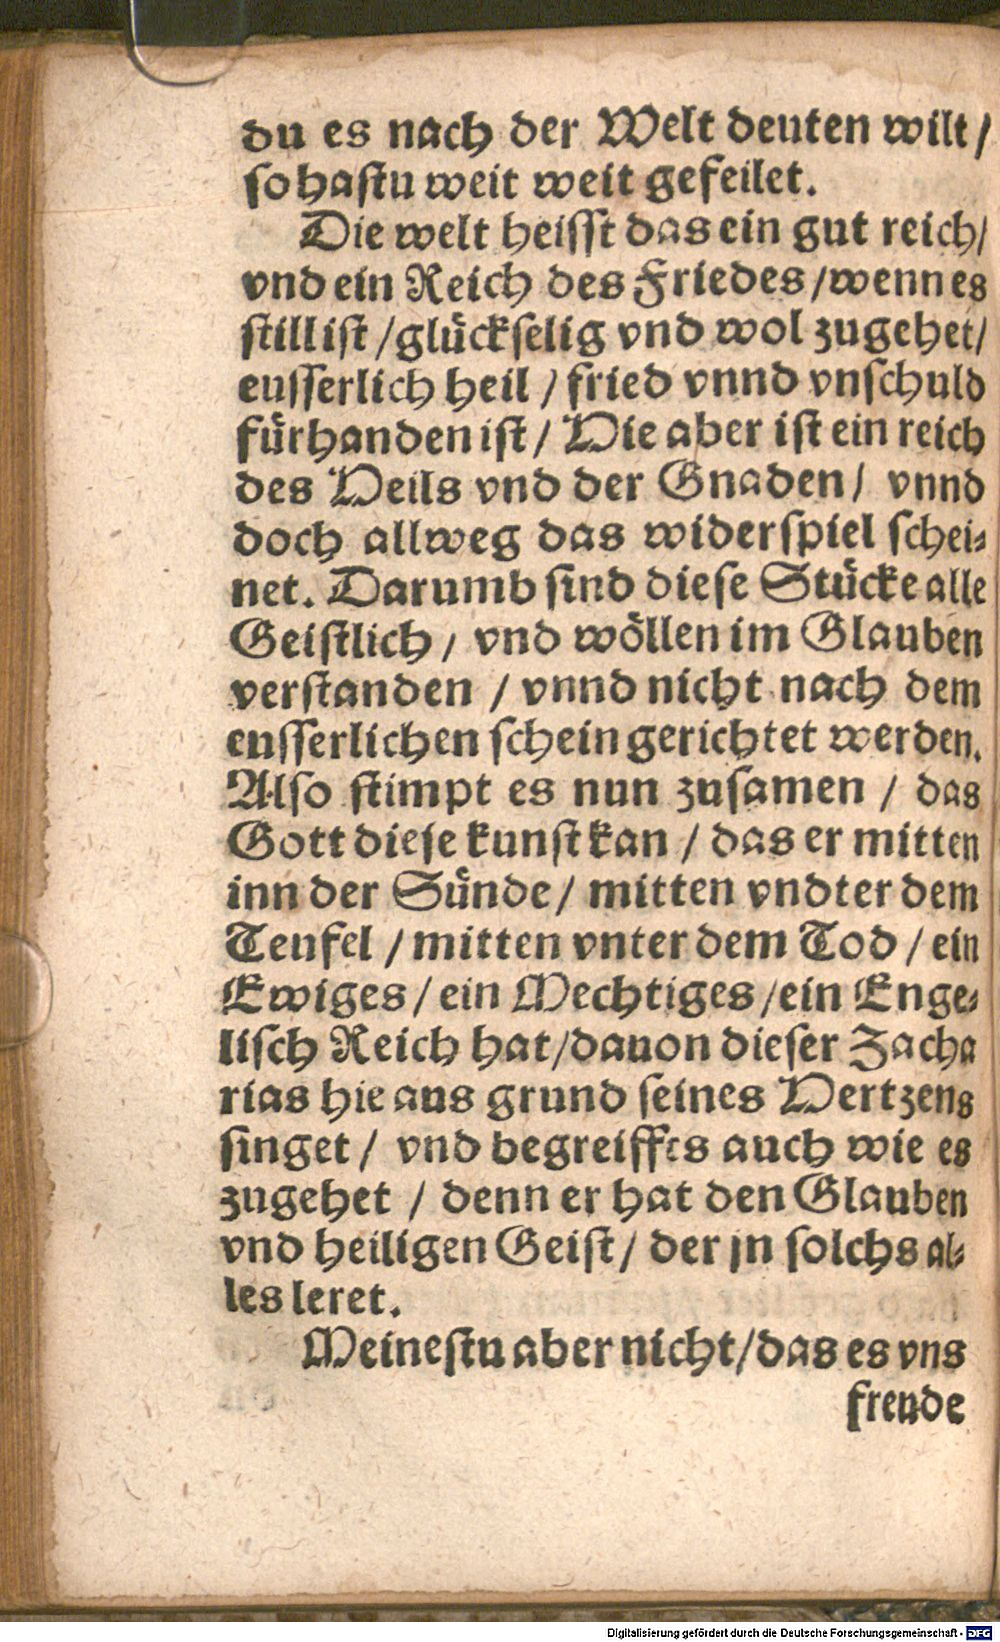 du es nach der Welt deuten wilt /
so hastu weit weit gefeilet.
Die welt heisst das ein gut reich /
vnd ein Reich des Friedes / wenn es
still ist / glückselig vnd wol zugehet /
eusserlich heil / fried vnnd vnschuld
fürhanden ist / Hie aber ist ein reich
des Heils vnd der Gnaden / vnnd
doch allweg das widerspiel schei-
net. Darumb sind diese Stücke alle
Geistlich / vnd wöllen im Glauben
verstanden / vnnd nicht nach dem
eusserlichen schein gerichtet werden.
Also stimpt es nun zusamen / das
Gott diese kunst kan / das er mitten
inn der Sünde / mitten vndter dem
Teufel / mitten vnter dem Tod / ein
Ewiges / ein Mechtiges / ein Enge-
lisch Reich hat / dauon dieser Zacha
rias hie aus grund seines Hertzens
singet / vnd begreiffts auch wie es
zugehet / denn er hat den Glauben
vnd heiligen Geist / der jn solchs al-
les leret.
Meinestu aber nicht / das es vns
freude
Digitalisierung gefördert durch die Deutsche Forschungsgemeinschaft - DFG